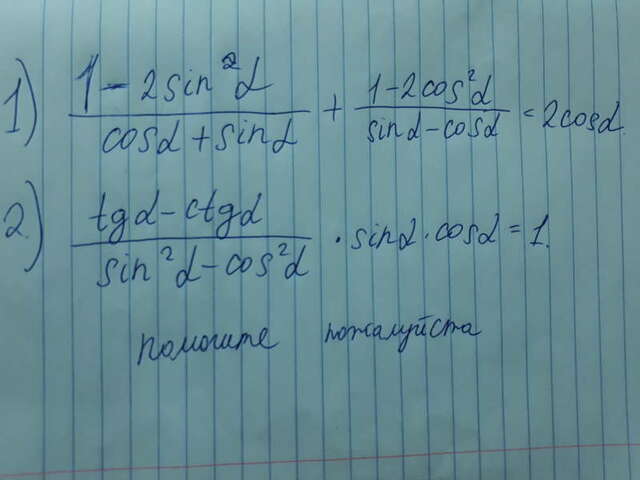 1) (1 - 2sin²α)/(cosα + sinα) + (1 - 2cos²α)/(sinα - cosα) = 2cosα.
2.) (tgα - ctgα)/(sin²α - cos²α) · sinα · cosα = 1.
помогите пожалуйста